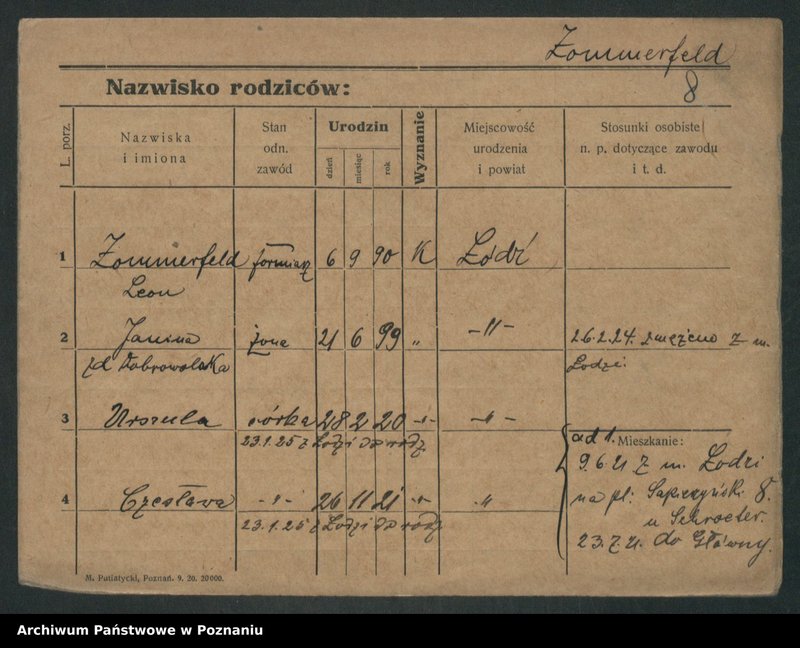 Zommerfeld
8
Nazwisko rodziców:
L. porz.
Nazwiska
i imiona
Stan
odn.
zawód
Urodzin
dzień
miesiąc
rok
Wyznanie
Miejscowość
urodzenia
i powiat
Stosunki osobiste
n. p. dotyczące zawodu
i t. d.
1 Zommerfeld formiarz 6 9 90 K Łódź
Leon
2 Janina żona 21 6 99 „ -„- 26.2.24. z m.
zd Dobrowolska Lodzi
3 Urszula córka 28 2 20 -„- -„-
23.1.25 z Lodzi do rodz
ad 1. Mieszkanie:
9.6.21 z m. Lodzi
4 Czesława -„- 26 11 21 -„- „
na pl: Sapieżyński 8.
23.1.25 z Lodzi do rodz
u Schroeter.
23.7.21. do Główny.
M. Putiatycki, Poznań. 9. 20. 20000.
Archiwum Państwowe w Poznaniu